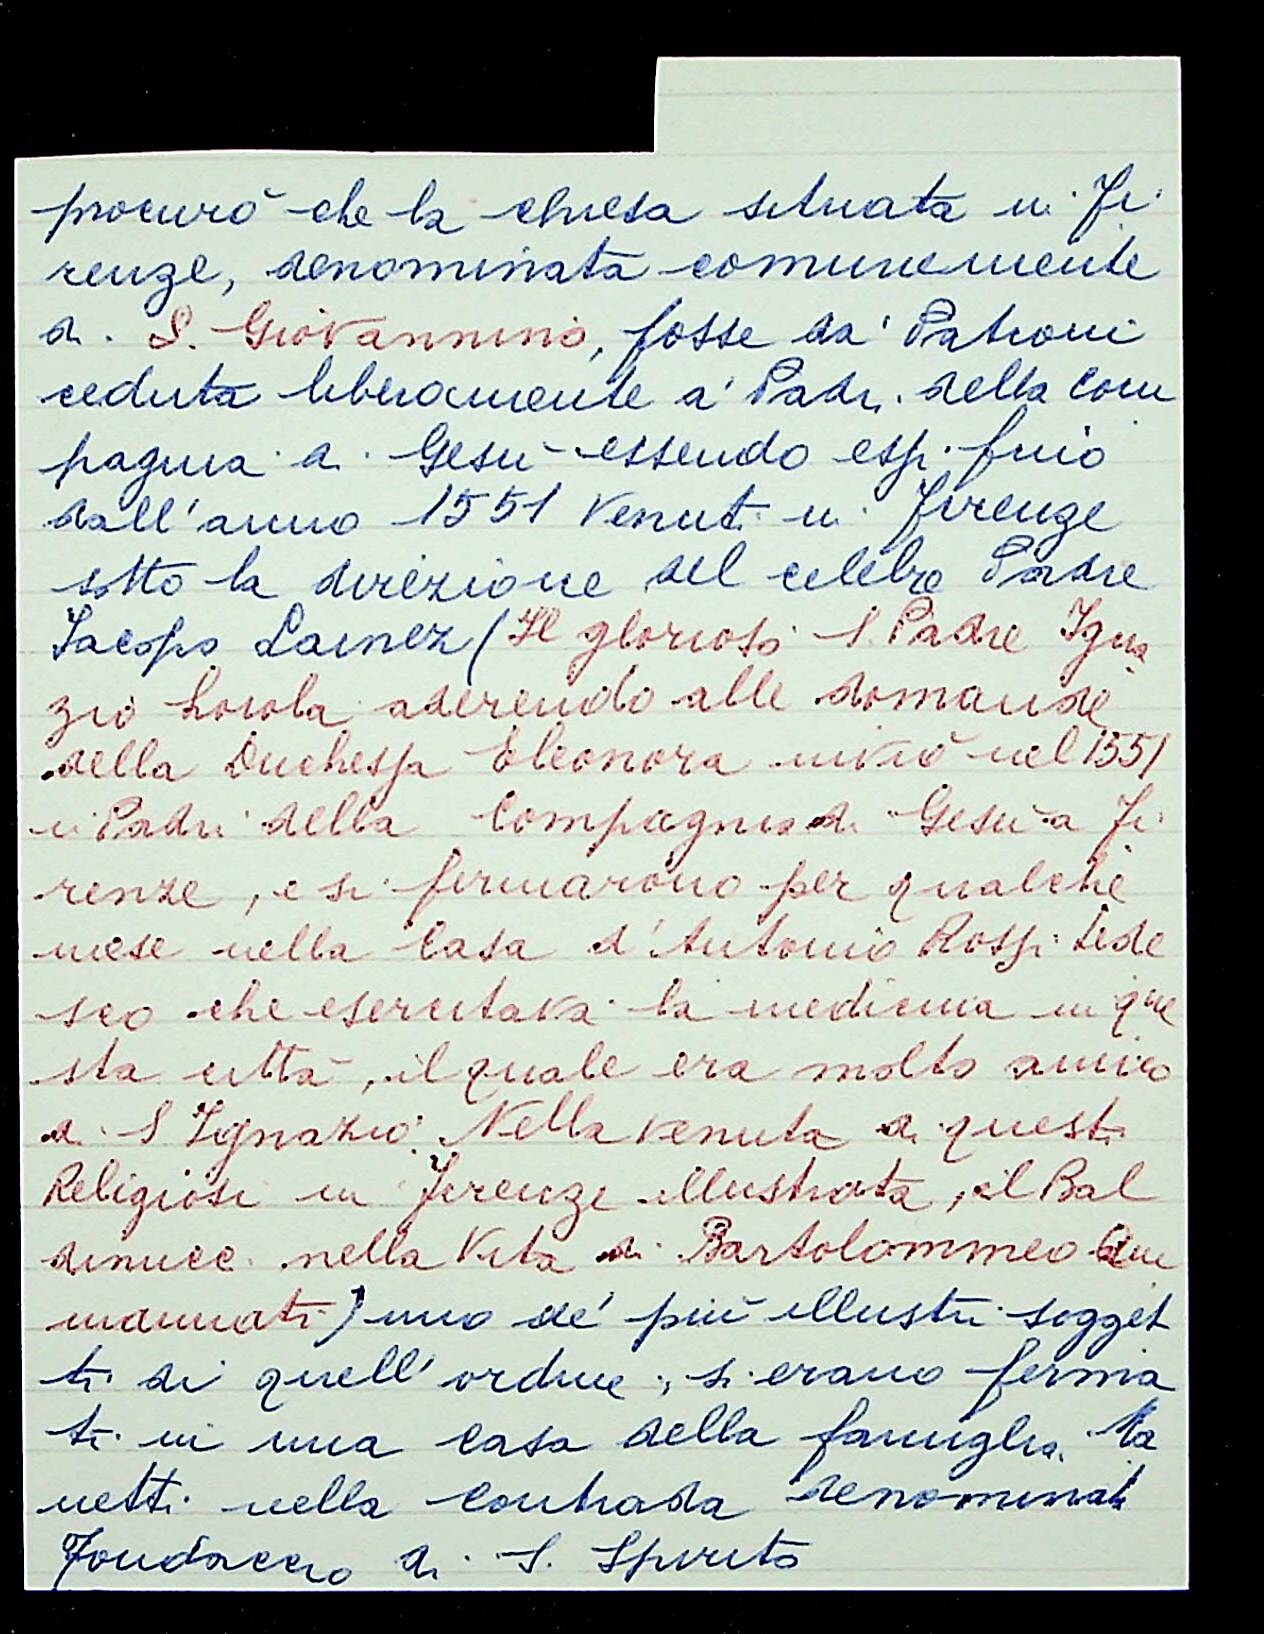 procurò che la chiesa situata in Fi
renze, denominata comunemente
di S. Giovannino, fosse da' Patroni
ceduta liberamente a' Padri della Com
pagnia di Gesù essendo essi fino
dall'anno 1551 venuti in Firenze
sotto la direzione del celebre Padre
Jacopo Lainez (Il glorioso S. Padre Igna
zio Loiola aderendo alle domande
della Duchessa Eleonora inviò nel 1551
i Padri della Compagnia di Gesù a Fi
renze, e si fermarono per qualche
mese nella Casa d'Antonio Rossi Tede
sco che esercitava la medicina in que
sta città, il quale era molto amico
di S Ignazio. Nella venuta di questi
Religiosi in Firenze illustrata, il Bal
dinucci nella Vita di Bartolommeo Am
mannati) uno de' più illustri sogget
ti di quell'ordine, si erano ferma
ti in una casa della famiglia Ma
netti nella contrada denominata
Fondaccio di S. Spirito